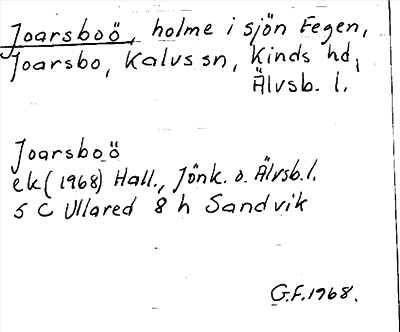 Joarsboö, holme i sjön Fegen,
Joarsbo, Kalvs sn, Kinds hd,
Älvsb. l.
Joarsboö
ek (1968) Hall., Jönk. o. Älvsb. l.
5 C Ullared 8 h Sandvik
G.F. 1968.